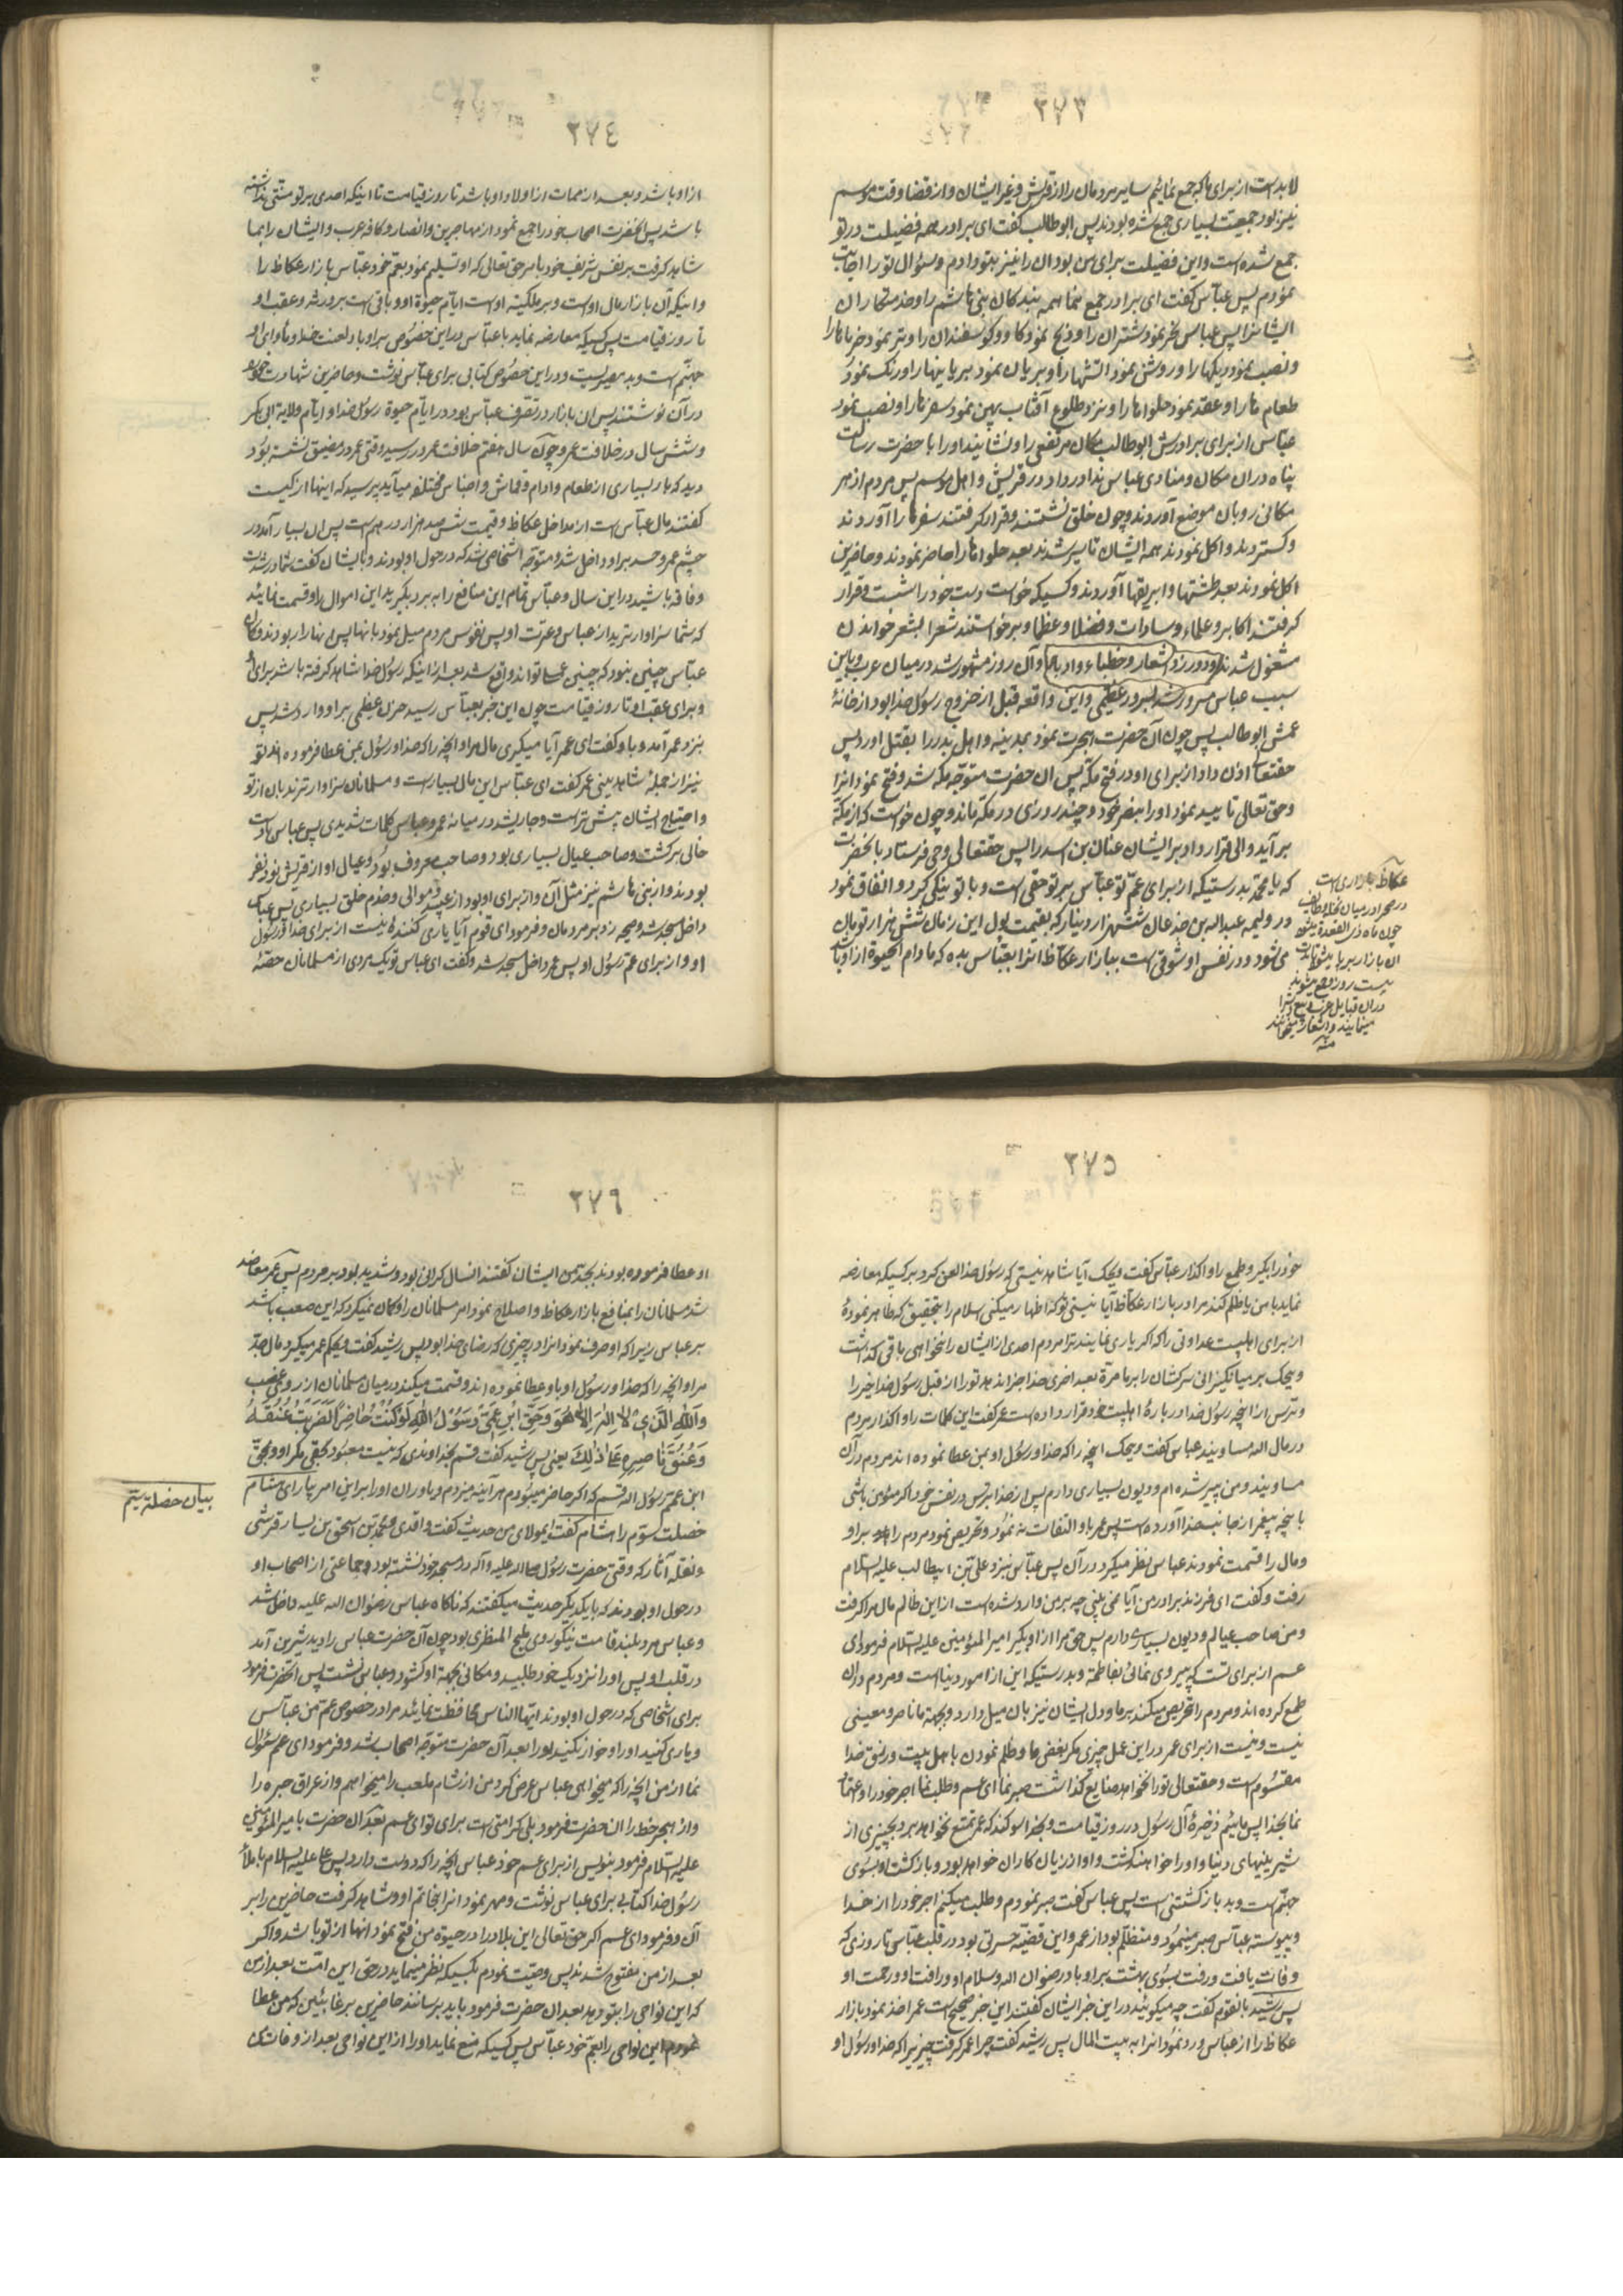 ٢٧٣
لابد است از برای ما که جمع نمائیم سایر مردمان را از قریش و غیر ایشان و از قضا وقت موسم
نیز بود جمعیت بسیاری جمع شده بودند پس ابوطالب گفت ای برادر همه فضیلت در تو
جمع شده است و این فضیلت برای من بود آن را نیز بتو دادم و سؤال تو را اجابت
نمودم پس عباس گفت ای برادر جمع نما همه بندکان بنی هاشم را و خدمتکاران
ایشانرا پس عباس نحر نمود شتران را و ذبح نمود کاو و کوسفندان را و
و نصب نمود دیکها را و روشن نمود آتشها را و بریان نمود بریانیها را و رنک نمود
طعام ها را و عقد نمود حلواها را و نزد طلوع آفتاب پهن نمود سفره ها را و نصب نمود
عباس از برای برادرش ابوطالب مکان مرتفعی را و نشانید او را با حضرت رسالت
پناه در آن مکان و منادی عباس ندا در داد در قریش و اهل موسم پس مردم از هر
مکانی رو بآن موضع آوردند و چون خلق نشستند و قرار کرفتند سفره ها را آوردند
و کستردند و اکل نمودند همه ایشان تا سیر شدند بعد حلواها را حاضر نمودند و حاضرین
اکل نمودند بعد طشتها و ابریقها آوردند و کسیکه خواست دست خود را شست و قرار
کرفتند اکابر و علماء و سادات و فضلا و عظما و برخواستند شعرا بشعر خواندن
مشغول شدند و در زد اشعار و خطباء و ادبا و آن روز مشهور شد در میان عرب و باین
سبب عباس مسرور شد بسرور عظیمی و این واقعه قبل از خروج رسول خدا بود از خانهٔ
عمش ابوطالب پس چون آن حضرت هجرت نمود بمدینه و اهل بدر را بقتل آورد پس
حقتعالی اذن داد از برای او در فتح مکه پس آن حضرت متوجه مکه شد و فتح نمود آنرا
و حق تعالی تایید نمود او را بنصر خود و چند روزی در مکه ماند و چون خواست که از مکه
بر آید والی قرار داد بر ایشان عتاب بن اسد را پس حقتعالی وحی فرستاد بآنحضرت
که یا محمد بدرستیکه از برای عم تو عباس بر تو حقی است و با تو نیکی کرد و انفاق نمود
در ولیمه عبداله بن جذعان ششهزار دینار که بقیمت پول این زمان شش هزار تومان
میشود و در نفس او شوقی است ببازار عکاظ آنرا بعباس بده که مادام الحیوة از او باشد
عکاظ بازاری است
در صحرا در میان نخله و طائف
چون ماه ذی القعده میشود
آن بازار بر پا میشود تا
بیست روز و جمع میشوند
در آن قبایل عرب و بیع و شرا
مینمایند و اشعار میخوانند
منه
٢٧٤
از او باشد و بعد از ممات از اولاد او باشد تا روز قیامت تا اینکه احدی بر تو منتی نداشته
باشد پس آنحضرت اصحاب خود را جمع نمود از مهاجرین و انصار و کافه عرب و ایشان را بها
شاهد کرفت بر نفس شریف خود بامر حق تعالی که او تسلیم نمود بعم خود عباس بازار عکاظ را
و اینکه آن بازار مال او است و بر ملکیت او است ایام حیوة او و باقی است بر ورثه و عقب او
تا روز قیامت پس کسیکه معارضه نماید با عباس در این خصوص بر او باد لعنت خدا و مأوای او
جهنم است و بد مصیریست و در این خصوص کتابی برای عباس نوشت و حاضرین شهادت خود
در آن نوشتند پس آن بازار در تصرف عباس بود در ایام حیوة رسول خدا و ایام ولایة ابی بکر
و شش سال در خلافت عمر و چون سال هفتم خلافت عمر در رسید وقتی عمر در مضیق نشسته بود
دید که بار بسیاری از طعام و ادام و قماش و اجناس مختلفه میآید پرسید که اینها از کیست
کفتند مال عباس است از مداخل عکاظ و قیمت ششصد هزار درهم است پس آن بسیار آمد در
چشم عمر و حسد بر او داخل شد و متوجه اشخاصی شد که در حول او بودند و بایشان گفت شما در شدت
و فاقه باشید در این سال و عباس تمام این منافع را به برد بگیرید این اموال را و قسمت نمائید
که شما سزاوارترید از عباس و عترت او پس نفوس مردم میل نمود بآنها پس آنها را ربودند و کمان
عباس چنین نبود که چنین عملی تواند واقع شد بعد از اینکه رسول خدا شاهد کرفته باشد برای او
و برای عقب او تا روز قیامت چون این خبر بعباس رسید حزن عظیمی بر او وارد شد پس
بنزد عمر آمد و باو گفت ای عمر آیا میکیری مال مرا و آنچه را که خدا و رسول بمن عطا فرموده اند تو
نیز از جملهٔ شاهدینی عمر گفت ای عباس این مال بسیار است و مسلمانان سزاوارترند بآن از تو
و احتیاج ایشان بیشتر است و جاری شد در میانه عمر و عباس کلمات شدیدی پس عباس
خالی برکشت و صاحب عیال بسیاری بود و صاحب معروف بود و عیال او از قریش نود نفر
بودند و از بنی هاشم نیز مثل آن و از برای او بود از عبید و موالی و خدم خلق بسیاری پس عباس
داخل مسجد شد و صیحه زد بر مردمان و فرمود ای قوم آیا یاری کننده نیست از برای خدا و رسول
او و از برای عم رسول او پس عمر داخل مسجد شد و گفت ای عباس تو یک مردی از مسلمانان حصهٔ
٢٧٥
خود را بگیر و طمع را واکذار عباس گفت ویحک آیا شاهد نیستی که رسول خدا لعن کرد بر کسیکه معارضه
نماید با من یا ظلم کند مرا در بازار عکاظ آیا نیستی تو که اظهار میکنی اسلام را بتحقیق که ظاهر نمودهٔ
از برای اهلبیت عداوتی را که اکر یاری نمایند ترا مردم احدی از ایشان را نخواهی باقی کذاشت
ویحک بر میانکیزانی سرکشان را بر ما مرة بعد اخری خدا جزا ندهد تو را از قبل رسول خدا خیر را
و بترس از آنچه رسول خدا در بارهٔ اهلبیت خود قرار داده است عمر گفت این کلمات را واکذار مردم
در مال اله مساویند عباس گفت ویحک آنچه را که خدا و رسول او بمن عطا نموده اند مردم در آن
مساویند و من پیر شده ام و دیون بسیاری دارم پس از خدا بترس در نفس خود اکر مؤمن باشی
بآنچه پیغمبر از جانب خدا آورده است پس عمر باو التفات نه نمود و تحریص نمود مردم را بر او
و مال را قسمت نمودند عباس نظر میکرد در آن پس عباس بنزد علی بن ابیطالب علیه السلام
رفت و گفت ای فرزند برادر من آیا نمی بینی چه بر من وارد شده است از این ظالم مال مرا کرفت
و من صاحب عیالم و دیون بسیاری دارم پس حق مرا از او بگیر امیر المؤمنین علیه السلام فرمود ای
عم از برای تست که پیروی نمائی بفاطمه و بدرستیکه این از امور دنیا است و مردم در آن
طمع کرده اند و مردم را تحریص میکنند بر ما و دل ایشان نیز بآن میل دارد و بجهة ما ناصر و معینی
نیست و نیست از برای عمر در این عمل چیزی مکر بغض ما و ظلم نمودن با اهل بیت و رزق خدا
مقسوم است و حقتعالی تو را نخواهد ضایع کذاشت صبر نما ای عم و طلب نما اجر خود را و اعتماد
نما بخدا پس مائیم ذخیرهٔ آل رسول در روز قیامت و بخدا سوکند که عمر تمتع نخواهد برد بچیزی از
شیرینیهای دنیا و او را خواهند کشت و او از زیان کاران خواهد بود و بازکشت او بسوی
جهنم است و بد بازکشتنی است پس عباس گفت صبر نمودم و طلب میکنم اجر خود را از خدا
و پیوسته عباس صبر مینمود و متظلم بود از عمر و این قضیه حسرتی بود در قلب عباس تا روزی که
وفات یافت و رفت بسوی بهشت بر او باد رضوان اله و سلام او و رأفت او و رحمت او
پس رشید بآنقوم گفت چه میکوئید در این خبر ایشان گفتند این خبر صحیح است عمر اخذ نمود بازار
عکاظ را از عباس و رد نمود آنرا به بیت المال پس رشید گفت چرا عمر کرفت چیزیرا که خدا و رسول او
٢٧٦
او عطا فرموده بودند بجد من ایشان گفتند آنسال کرانی بود و شدید بود بر مردم پس عمر معاضد
شد مسلمانان را بمنافع بازار عکاظ و اصلاح نمود امر مسلمانان را و کمان نمیکرد که این صعب باشد
بر عباس زیرا که او صرف نمود آنرا در چیزی که رضای خدا بود پس رشید گفت ویحکم عمر میکیرد مال جد
مرا و آنچه را که خدا و رسول او باو عطا نموده اند و قسمت میکند در میان مسلمانان از روی غصب
وَاللهِ الَّذِی لا اِلٰهَ اِلاّ هُوَ وَحَقِّ ابْنِ عَمّی رَسُولِ اللهِ لَوْ کُنْتُ حاضِراً لَضَرَبْتُ عُنُقَهُ
وَعُنُقَ ناصِرِهِ عَلیٰ ذٰلِکَ یعنی پس رشید گفت قسم بخداوندی که نیست معبود بحقی مکر او و بحق
ابن عمم رسول اله قسم که اکر حاضر میبودم هر آینه میزدم و یاوران او را بر این امر
خصلت سوم را هشام گفت ایمولای من حدیث گفت واقدی و محمد بن اسحق بن یسار قرشی
و نقله آثار که وقتی حضرت رسول صلی اله علیه و آله در مسجد خود نشسته بود و جماعتی از اصحاب او
در حول او بودند که با یکدیکر حدیث میکفتند که ناکاه عباس رضوان اله علیه داخل شد
و عباس مرد بلند قامت نیکو روی ملیح المنظری بود چون آن حضرت عباس را دید شیرین آمد
در قلب او پس او را نزدیک خود طلبید و مکانی بجهة او کشود و عباس نشست پس آنحضرت فرمود
برای اشخاصی که در حول او بودند ایها الناس محافظت نمائید مرا در خصوص عم من عباس
و یاری کنید او را و خوار نکنید او را بعد آن حضرت متوجه اصحاب شد و فرمود ای عم سؤال
نما از من آنچه را که میخواهی عباس عرض کرد من از شام ملعب را میخواهم و از عراق حیره را
و از هجر خط را آن حضرت فرمود بلی کرامتی است برای تو ای عم بعد آن حضرت بامیر المؤمنین
علیه السلام فرمود بنویس از برای عم خود عباس آنچه را که دوست دارد پس علی علیه السلام باملاء
رسول خدا کتابی برای عباس نوشت و مهر نمود آنرا بخاتم او و شاهد کرفت حاضرین را بر
آن و فرمود ای عم اکر حق تعالی این بلاد را در حیوة من فتح نمود آنها از تو باشد و اکر
بعد از من مفتوح شدند پس وصیت نمودم بکسیکه نظر مینماید در حق این امت بعد از من
که این نواحی را بتو دهد بعد آن حضرت فرمود باید برسانند حاضرین بر غائبین که من عطا
نمودم این نواحی را بعم خود عباس پس کسیکه منع نماید او را از این نواحی بعد از وفات من
بیان خصلت سیم